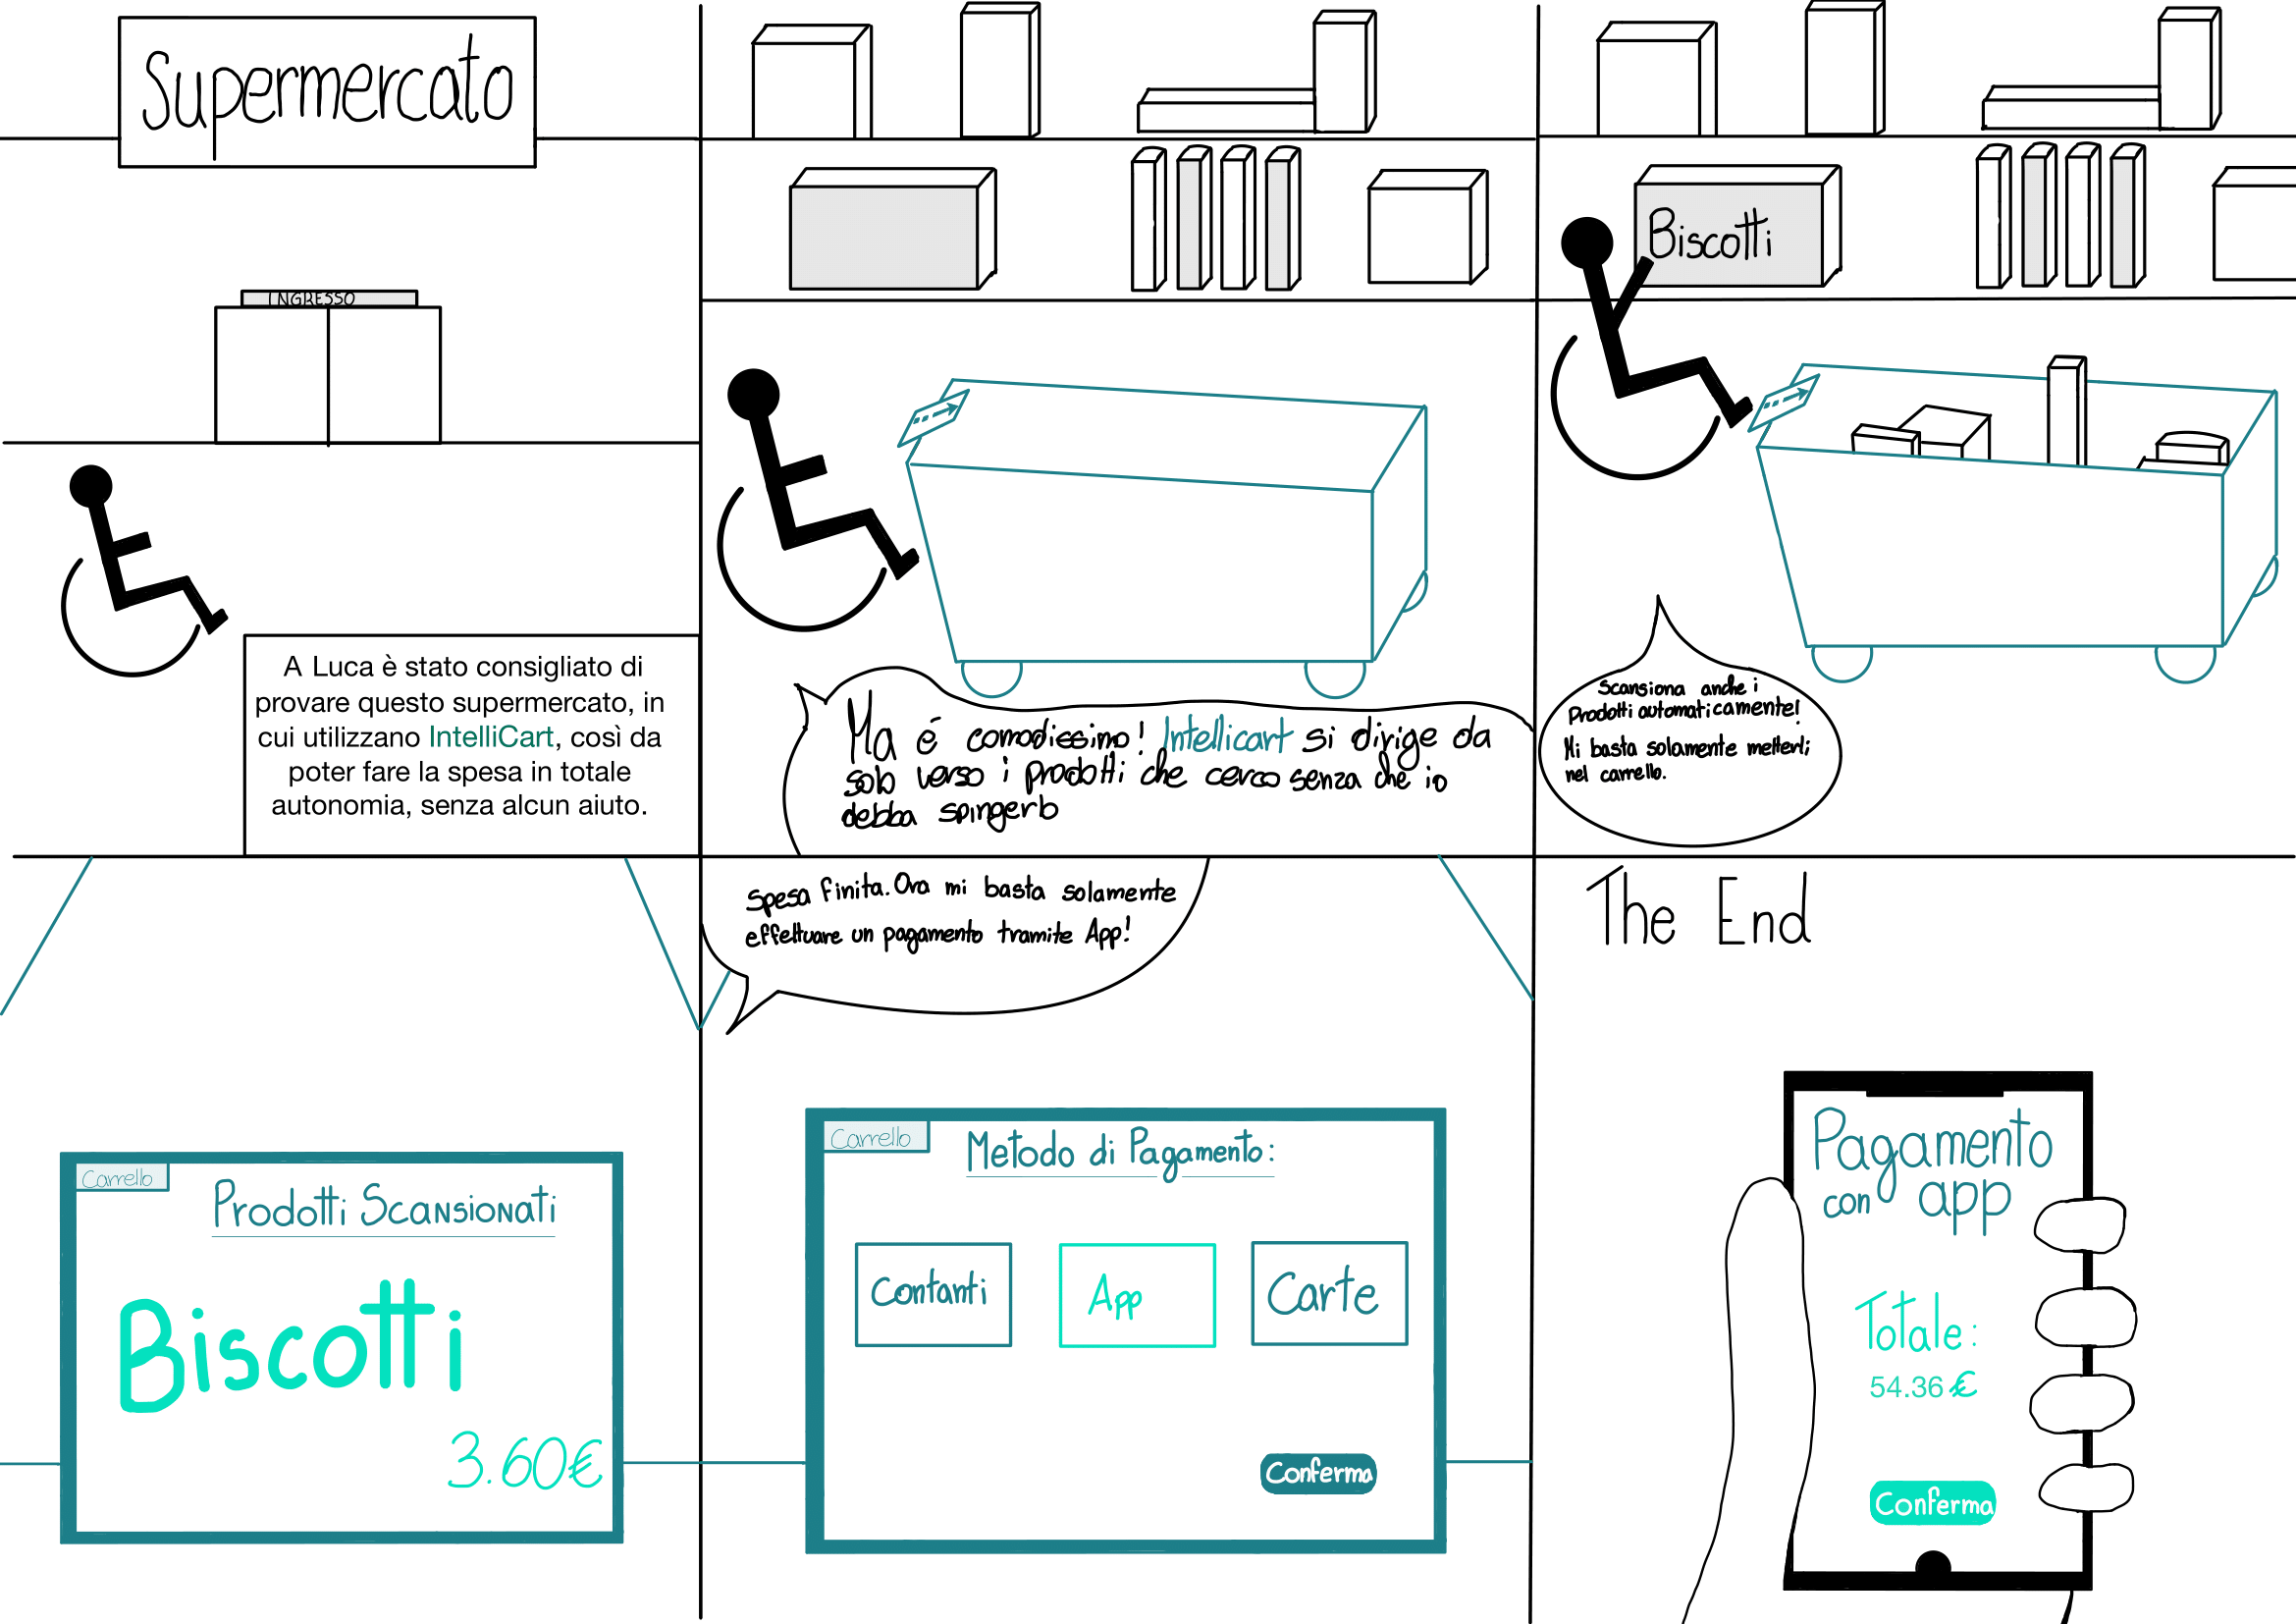 Supermercato
INGRESSO
A Luca è stato consigliato di
provare questo supermercato, in
cui utilizzano IntelliCart, così da
poter fare la spesa in totale
autonomia, senza alcun aiuto.
Ma é comodissimo! Intellicart si dirige da
solo verso i prodotti che cerco senza che io
debba spingerlo
Biscotti
Scansiona anche i
Prodotti automaticamente!
Mi basta solamente metterli
nel carrello.
Carrello
Prodotti Scansionati
Biscotti
3.60€
Spesa finita. Ora mi basta solamente
effettuare un pagamento tramite App!
Carrello
Metodo di Pagamento:
Contanti
App
Carte
Conferma
The End
Pagamento
con app
Totale:
54.36 €
Conferma